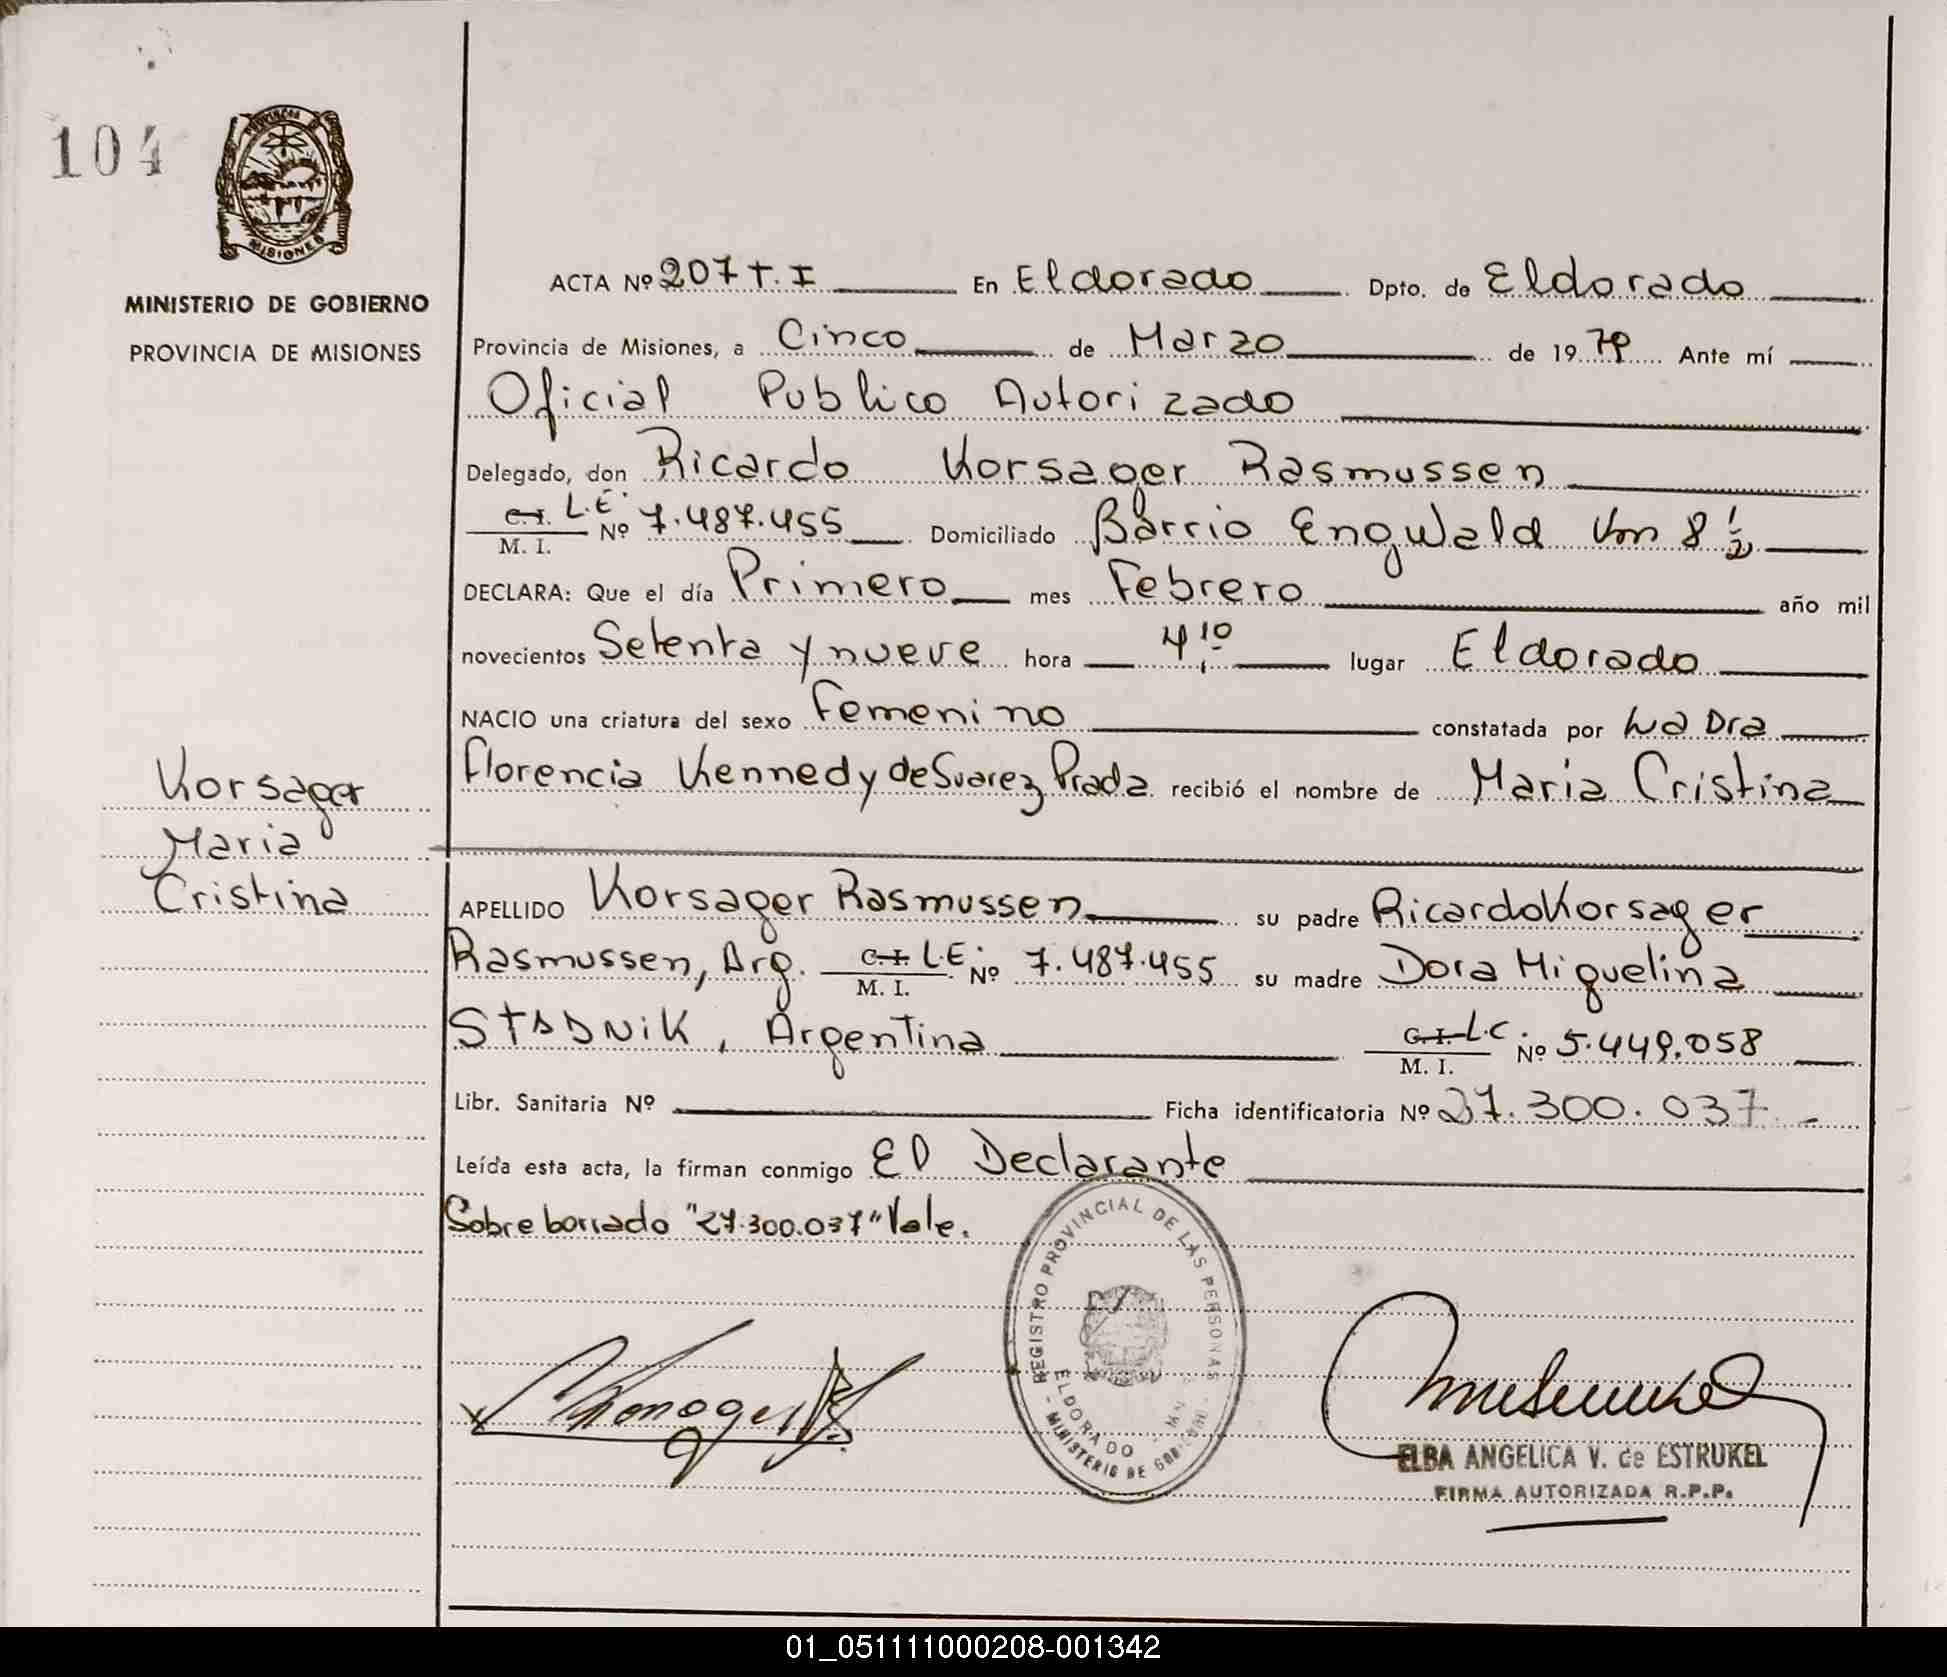 104
PROVINCIA D MISIONES
MINISTERIO DE GOBIERNO
PROVINCIA DE MISIONES
ACTA Nº 207 T. I En Eldorado Dpto. de Eldorado
Provincia de Misiones, a Cinco de Marzo de 1979 Ante mí
Oficial Publico Autorizado
Delegado, don Ricardo Korsager Rasmussen
C.I. L.E. M. I. Nº 7.487.455 Domiciliado Barrio Engwald Km 8 ½
DECLARA: Que el día Primero mes Febrero año mil
novecientos Setenta y nueve hora 4,10 lugar Eldorado
NACIO una criatura del sexo Femenino constatada por La Dra
Florencia Kennedy de Suarez Prada recibió el nombre de Maria Cristina
Korsager
Maria
Cristina
APELLIDO Korsager Rasmussen su padre Ricardo Korsager
Rasmussen, Arg. C.I. L.E. M. I. Nº 7.487.455 su madre Dora Miguelina
STADNIK, Argentina C.I. L.C. M. I. Nº 5.449.058
Libr. Sanitaria Nº Ficha identificatoria Nº 27.300.037
Leída esta acta, la firman conmigo El Declarante
Sobre borrado "27.300.037" Vale.
REGISTRO PROVINCIAL DE LAS PERSONAS
ELDORADO
MINISTERIO DE GOBIERNO
ELBA ANGELICA V. de ESTRUKEL
FIRMA AUTORIZADA R.P.P.
01_051111000208-001342